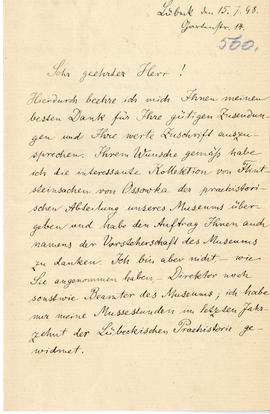 Lübeck den 15. 7. 98.
Gartenstr. 14.
560.
Sehr geehrter Herr!
Hierdurch beehre ich mich Ihnen meinen
besten Dank für Ihre gütigen Zusendun-
gen und Ihre werte Zuschrift auszu-
sprechen. Ihrem Wunsche gemäß habe
ich die interessante Kollektion von Flint-
steinsachen von Ossowka der praehistori-
schen Abteilung unseres Museums über-
geben und habe den Auftrag Ihnen auch
namens der Vorsteherschaft des Museums
zu danken. Ich bin aber nicht – wie
Sie angenommen haben – Direktor noch
sonst wie Beamter des Museums; ich habe
nur meine Mussestunden im letzten Jahr-
zehnt der Lübeckischen Praehistorie ge-
widmet.